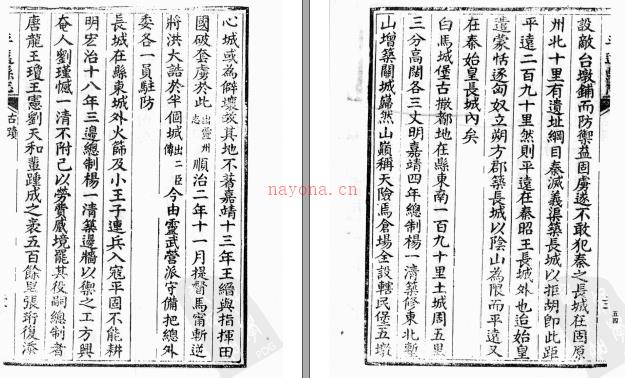 設敵台墩鋪而防禦益固虜遂不敢犯秦之長城在固原
州北十里有遺址綱目秦滅義渠築長城以拒胡即此距
平遠二百九十里然則平遠在秦昭王長城外也迨始皇
遣蒙恬逐匈奴立朔方郡築長城以陰山為限而平遠又
在秦始皇長城內矣
白馬城堡古撒都地在縣東南一百九十里土城周五里
三分高闊各三丈明嘉靖四年總制楊一清築修東北塹
山增築關城巋然山巔稱天險馬倉場全設轄民堡五墩
五四
心城或為僻壞故其地不著嘉靖十三年王縉與指揮田
國破套虜於此出靈州志順治二年十一月提督馬甯斬逆
將洪大誥於半個城出二臣傳今由靈武營派守備把總外
委各一員駐防
長城在縣東城外火篩及小王子連兵入寇平固不能耕
明宏治十八年三邊總制楊一清築邊牆以禦之工方興
奄人劉瑾憾一清不附己以勞費蹙境罷其役嗣總制者
唐龍王瓊王憲劉天和輩踵成之袤五百餘里張珩復添
古蹟
nayona.cn